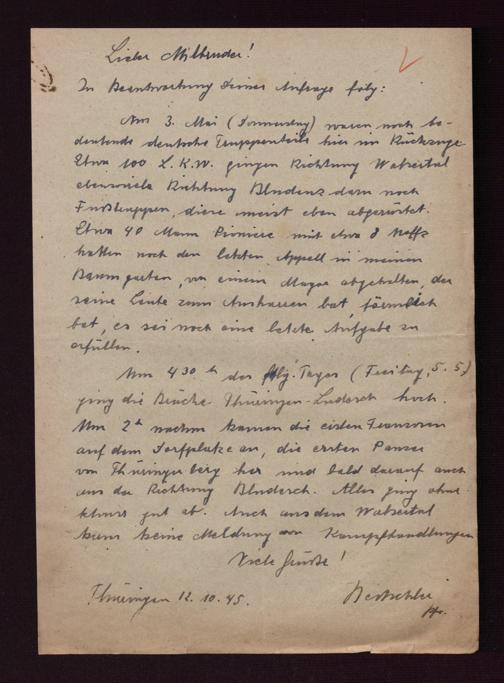 Lieber Mitbruder!
In Beantwortung Deiner Anfrage folg:
Am 3. Mai (Donnerstag) waren noch be-
deutende deutsche Truppenteile hier im Rückzuge
Etwa 100 L.K.W. gingen Richtung Walsertal
ebensoviele Richtung Bludenz dann noch
Fusstruppen, diese meist eben abgerüstet.
Etwa 40 Mann Pioniere mit etwa 8
hatten noch den letzten Appell in meinem
Baumgarten, von einem Major abgehalten, der
seine Leute zum Ausharren bat, förmlich
bat, es sei noch eine letzte Aufgabe zu
erfüllen.
Um 4 30 h des flg. Tages (Freitag, 5.5.)
ging die Brücke Thüringen-Ludesch hoch.
Um 2 h nachm kamen die ersten Franzosen
auf dem Dorfplatze an, die ersten Panzer
von Thüringerberg her und bald darauf auch
aus der Richtung Bludesch. Alles ging ohne
gut ab. Auch aus dem Walsertal
kam keine Meldung von Kampfhandlungen
Viele Grüße!
Thüringen 12.10.45.